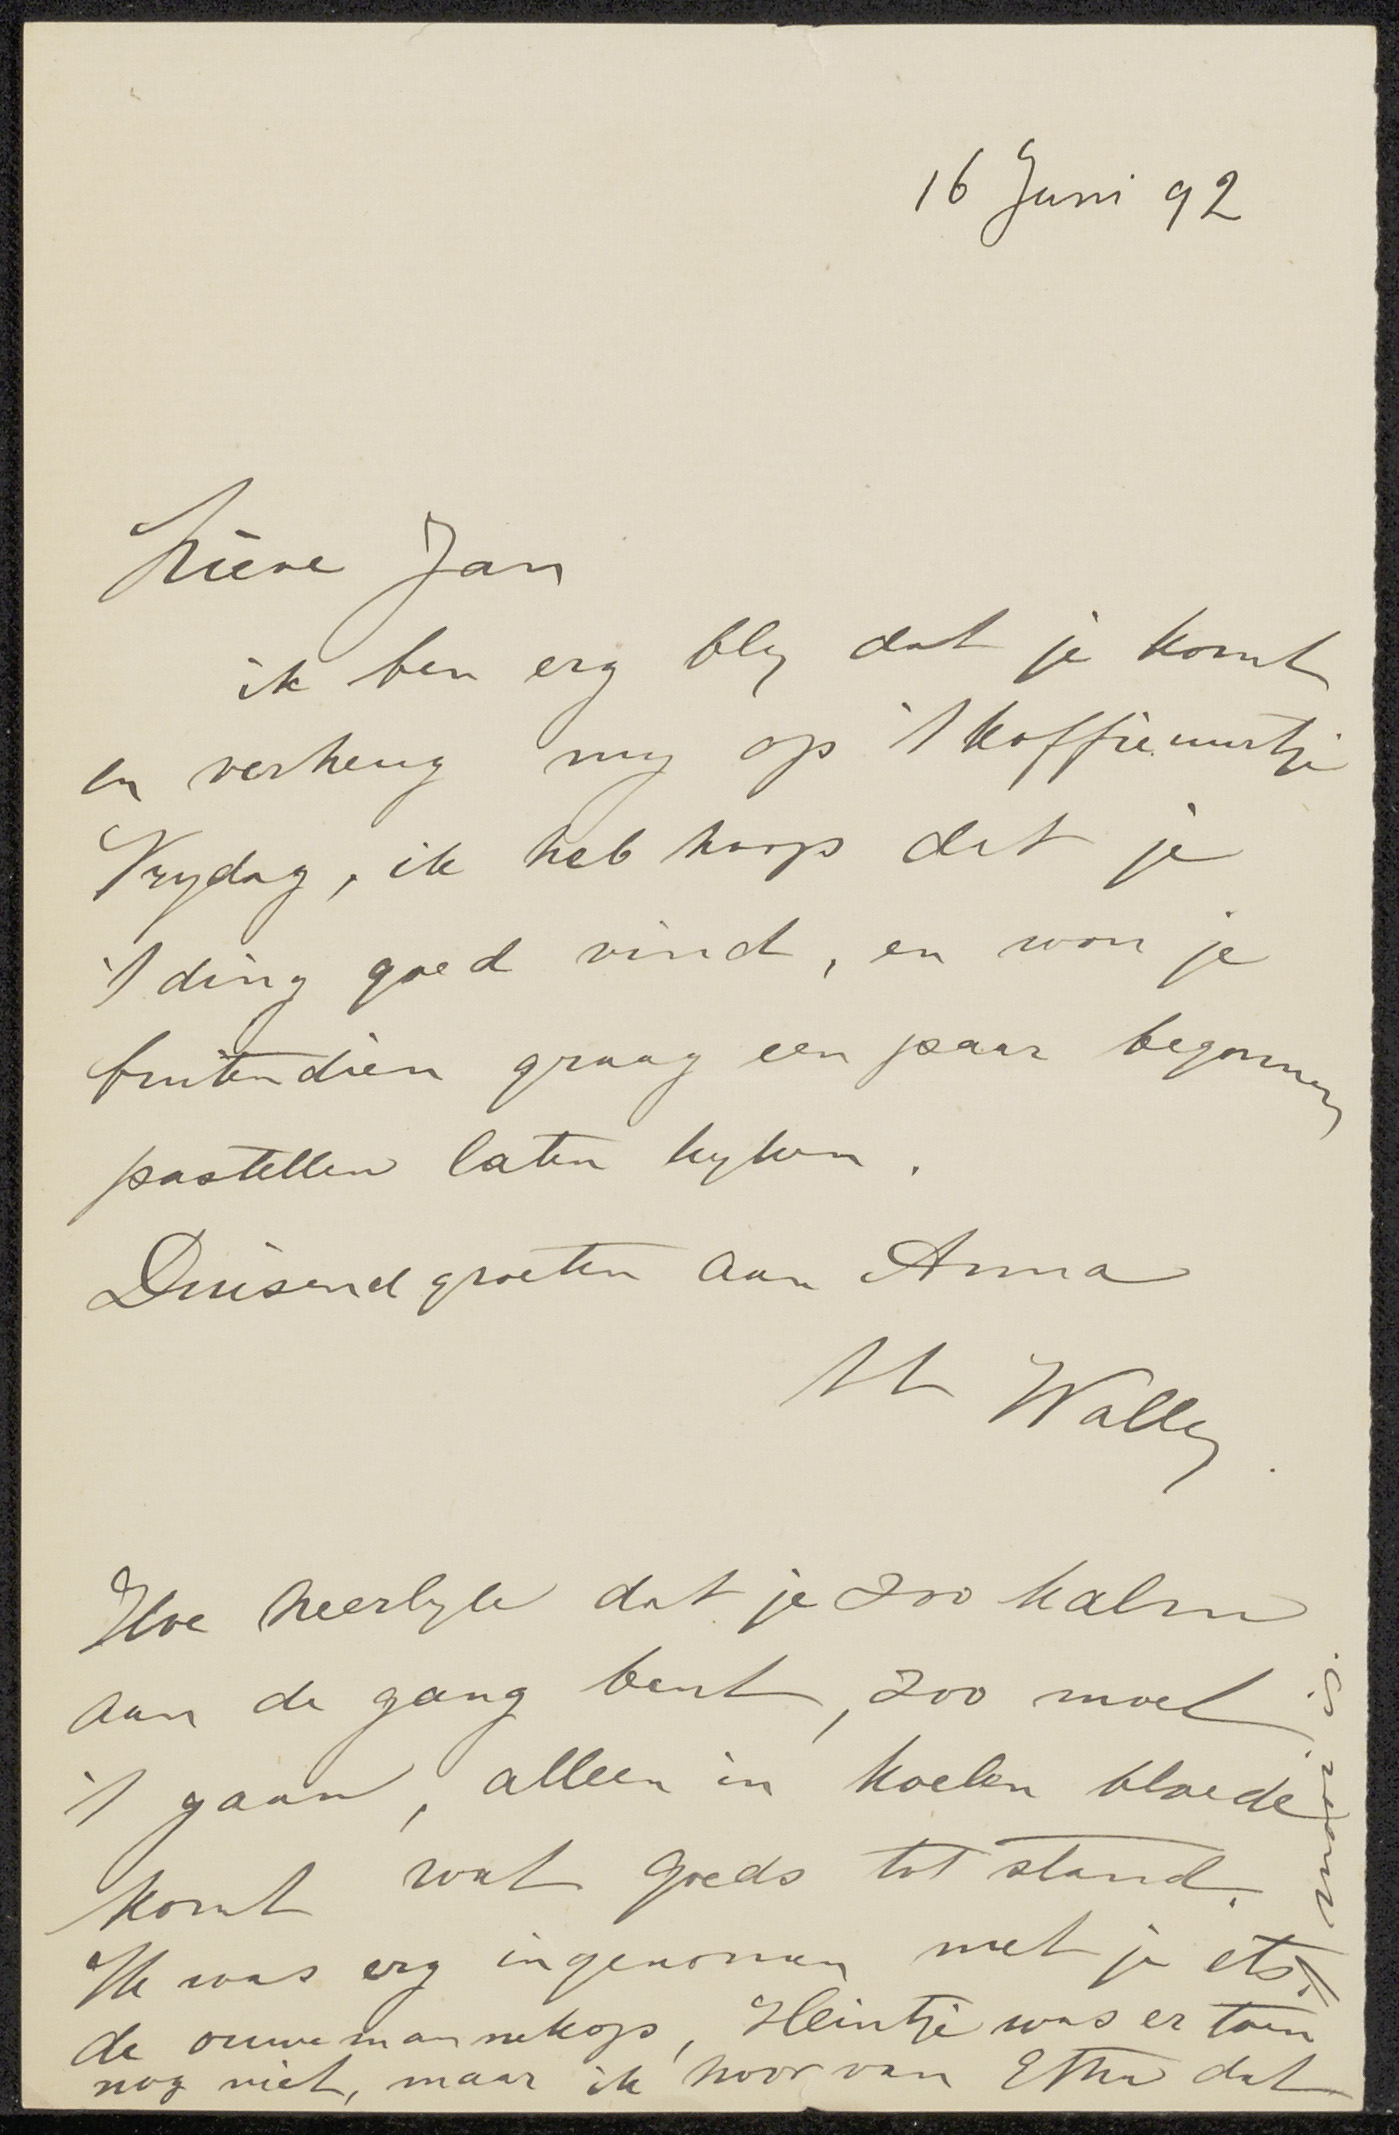 16 Juni 92
Lieve Jan
ik ben erg bly dat je komt
en verheug my op 't koffieuurtje
Vrydag, ik heb hoop dat je
't ding goed vind, en wou je
buitendien graag een paar begonnen
pastellen laten kyken.
Duisend groeten aan Anna
Wally
Hoe heerlyk dat je zoo kalm
aan de gang bent, zoo moet
't gaan, alleen in koelen bloede
komt wat goeds tot stand.
Ik was erg ingenomen met je ets
de ouwemannekop, Heintje was er toen
nog niet, maar ik hoor van Etha dat
't mooi is.